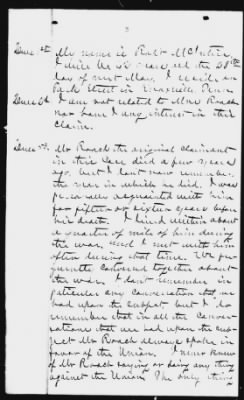 Ques 1st My name is Robt McIntire.
I will be 52 years old the 28th
day of next May. I reside on
Park Street in Knoxville, Tenn.
Ques 2d. I am not related to Mrs Roach
nor have I any interest in this
claim.
Ques 3d. Mr Roach the original claimant
in this case died a few years
ago, but I don't now remember
the year in which he died. I was
personally acquainted with him
for fifteen or sixteen years before
his death. I lived within about
a quarter of mile of him during
the war, and I met with him
often during that time. We fre
quently conversed together about
the war. I don't remember in
particular any conversation we
had upon the subject but I do
remember that in all the conver
sations that we had upon the sub
ject Mr Roach always spoke in
favor of the Union. I never knew
of Mr Roach saying or doing any thing
against the Union. The only thing